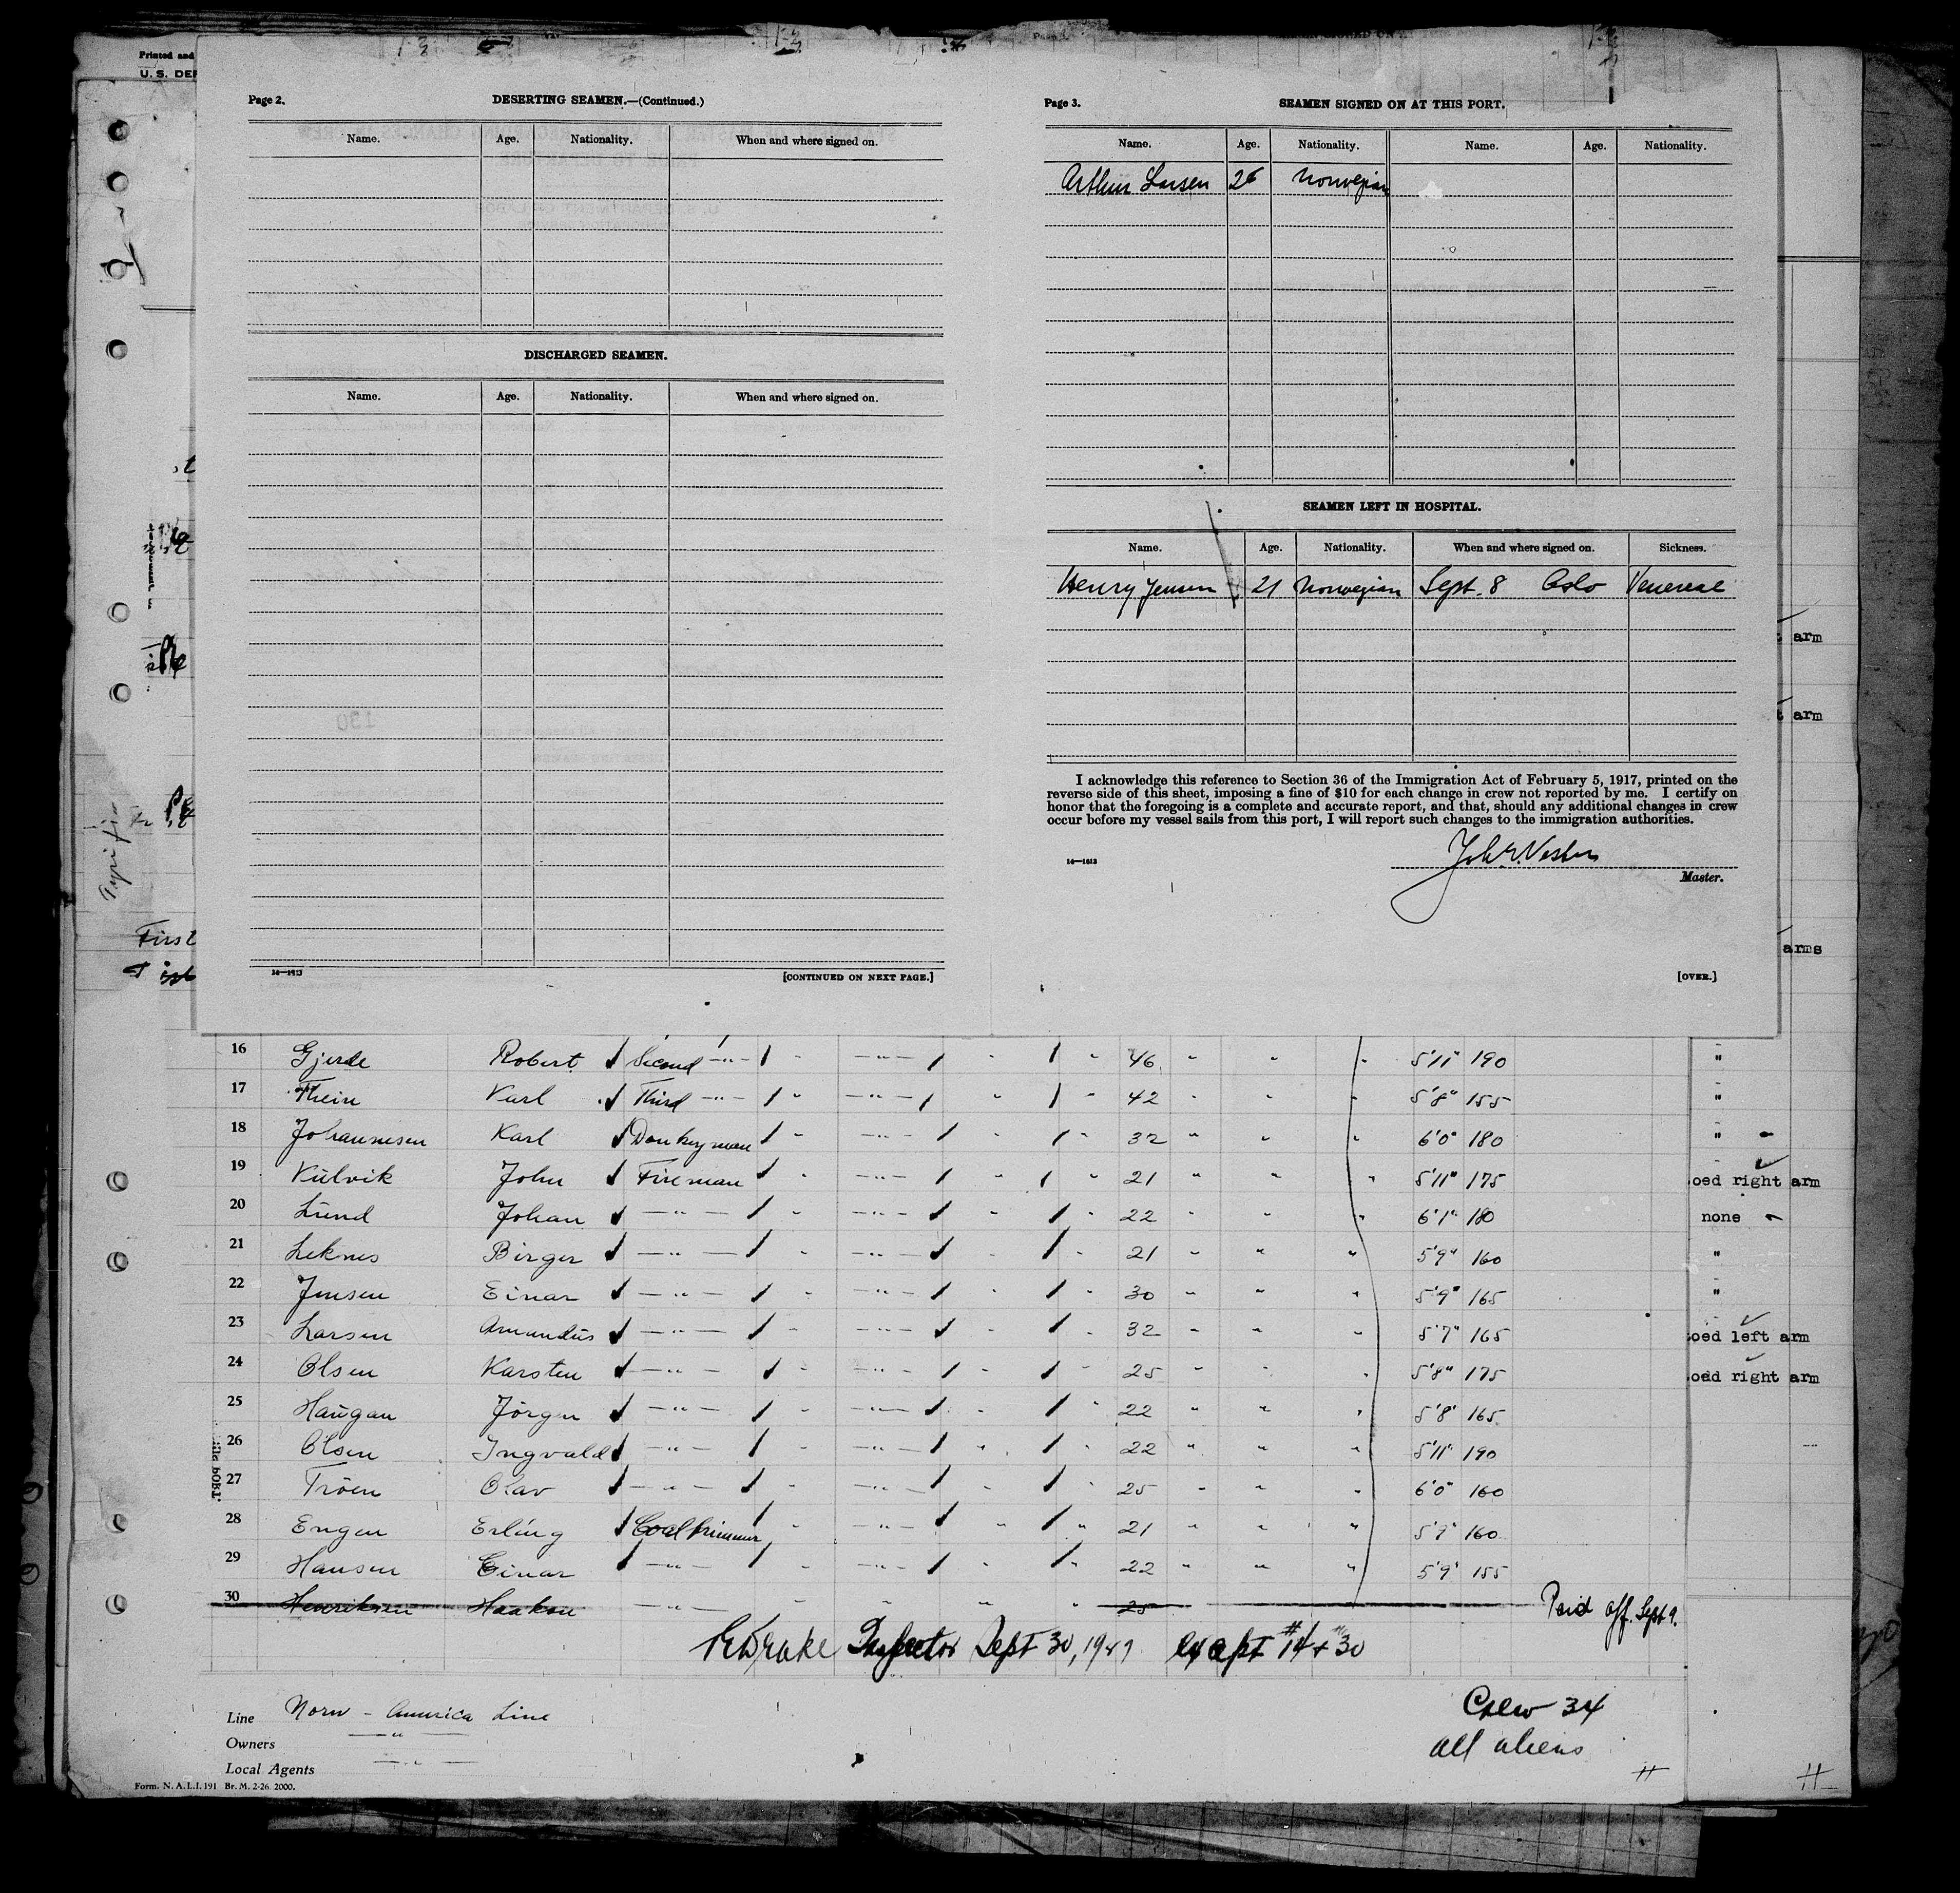 Printed and
U. S. DEP
Page 2.
DESERTING SEAMEN.—(Continued.)
Name. Age. Nationality. When and where signed on.
DISCHARGED SEAMEN.
Name. Age. Nationality. When and where signed on.
14—1613
[CONTINUED ON NEXT PAGE.]
Page 3.
SEAMEN SIGNED ON AT THIS PORT.
Name. Age. Nationality. Name. Age. Nationality.
Arthur Larsen 26 Norwegian
SEAMEN LEFT IN HOSPITAL.
Name. Age. Nationality. When and where signed on. Sickness.
Henry Jensen 21 Norwegian Sept. 8 Oslo Venereal
I acknowledge this reference to Section 36 of the Immigration Act of February 5, 1917, printed on the
reverse side of this sheet, imposing a fine of $10 for each change in crew not reported by me. I certify on
honor that the foregoing is a complete and accurate report, and that, should any additional changes in crew
occur before my vessel sails from this port, I will report such changes to the immigration authorities.
14—1613
Master.
[OVER.]
First
arm
arm
arms
16 Gjerde Robert Second —"— 46 " " " 5'11" 190 "
17 Thein Karl Third —"— 42 " " " 5'8" 155 "
18 Johannesen Karl Donkeyman 32 " " " 6'0" 180 "
19 Kulvik John Fireman 21 " " " 5'11" 175 oed right arm
20 Lund Johan —"— 22 " " " 6'1" 180 none
21 Leknes Birger —"— 21 " " " 5'9" 160 "
22 Jensen Einar —"— 30 " " " 5'9" 165 "
23 Larsen Amandus —"— 32 " " " 5'7" 165 oed left arm
24 Olsen Karsten —"— 25 " " " 5'8" 175 oed right arm
25 Haugan Jörgen —"— 22 " " " 5'8" 165
26 Olsen Ingvald —"— 22 " " " 5'11" 190
27 Tröen Olav —"— 25 " " " 6'0" 160
28 Engen Erling Coaltrimmer 21 " " " 5'9" 160
29 Hansen Einar —"— 22 " " " 5'9" 155
30 Henriksen Haakon —"— 25 Paid off. Sept 9.
Drake Inspector Sept 30, 1927 except #14 + #30
Line Norw - America Line
Owners —"—
Local Agents —"—
Form. N. A. L. I. 191 Br. M. 2-26. 2000.
Crew 34
all aliens